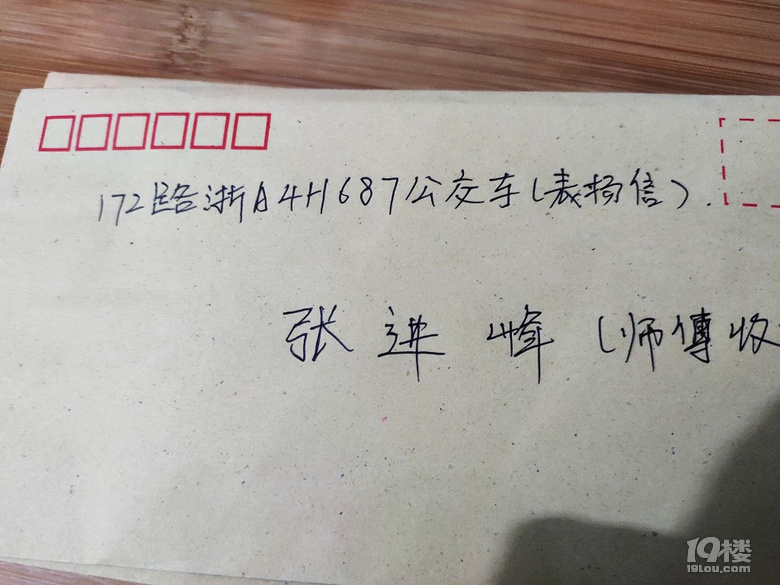 172路浙A4H687公交车(表扬信).
张进峰(师傅收
19楼
19lou.com